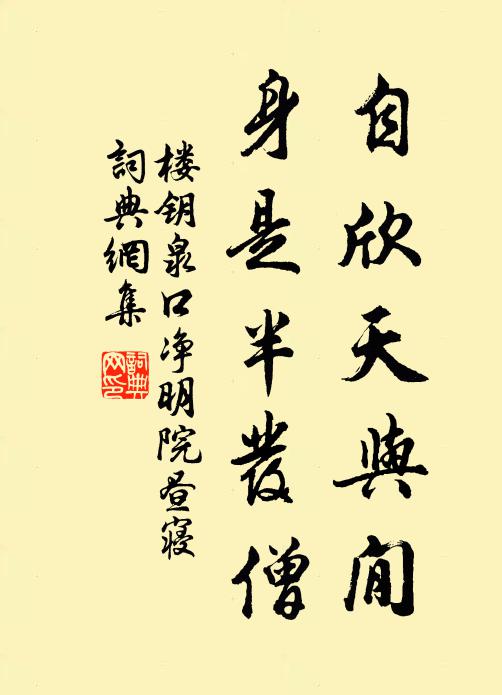 自欣天與閒
身是半發僧
楼钥泉口净明院昼寝
詞典網集
詞典网印